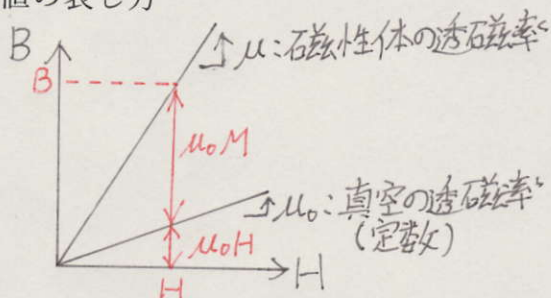 値の表し方
B
μ:磁性体の透磁率
B
μ₀M
μ₀:真空の透磁率
(定数)
μ₀H
H
H